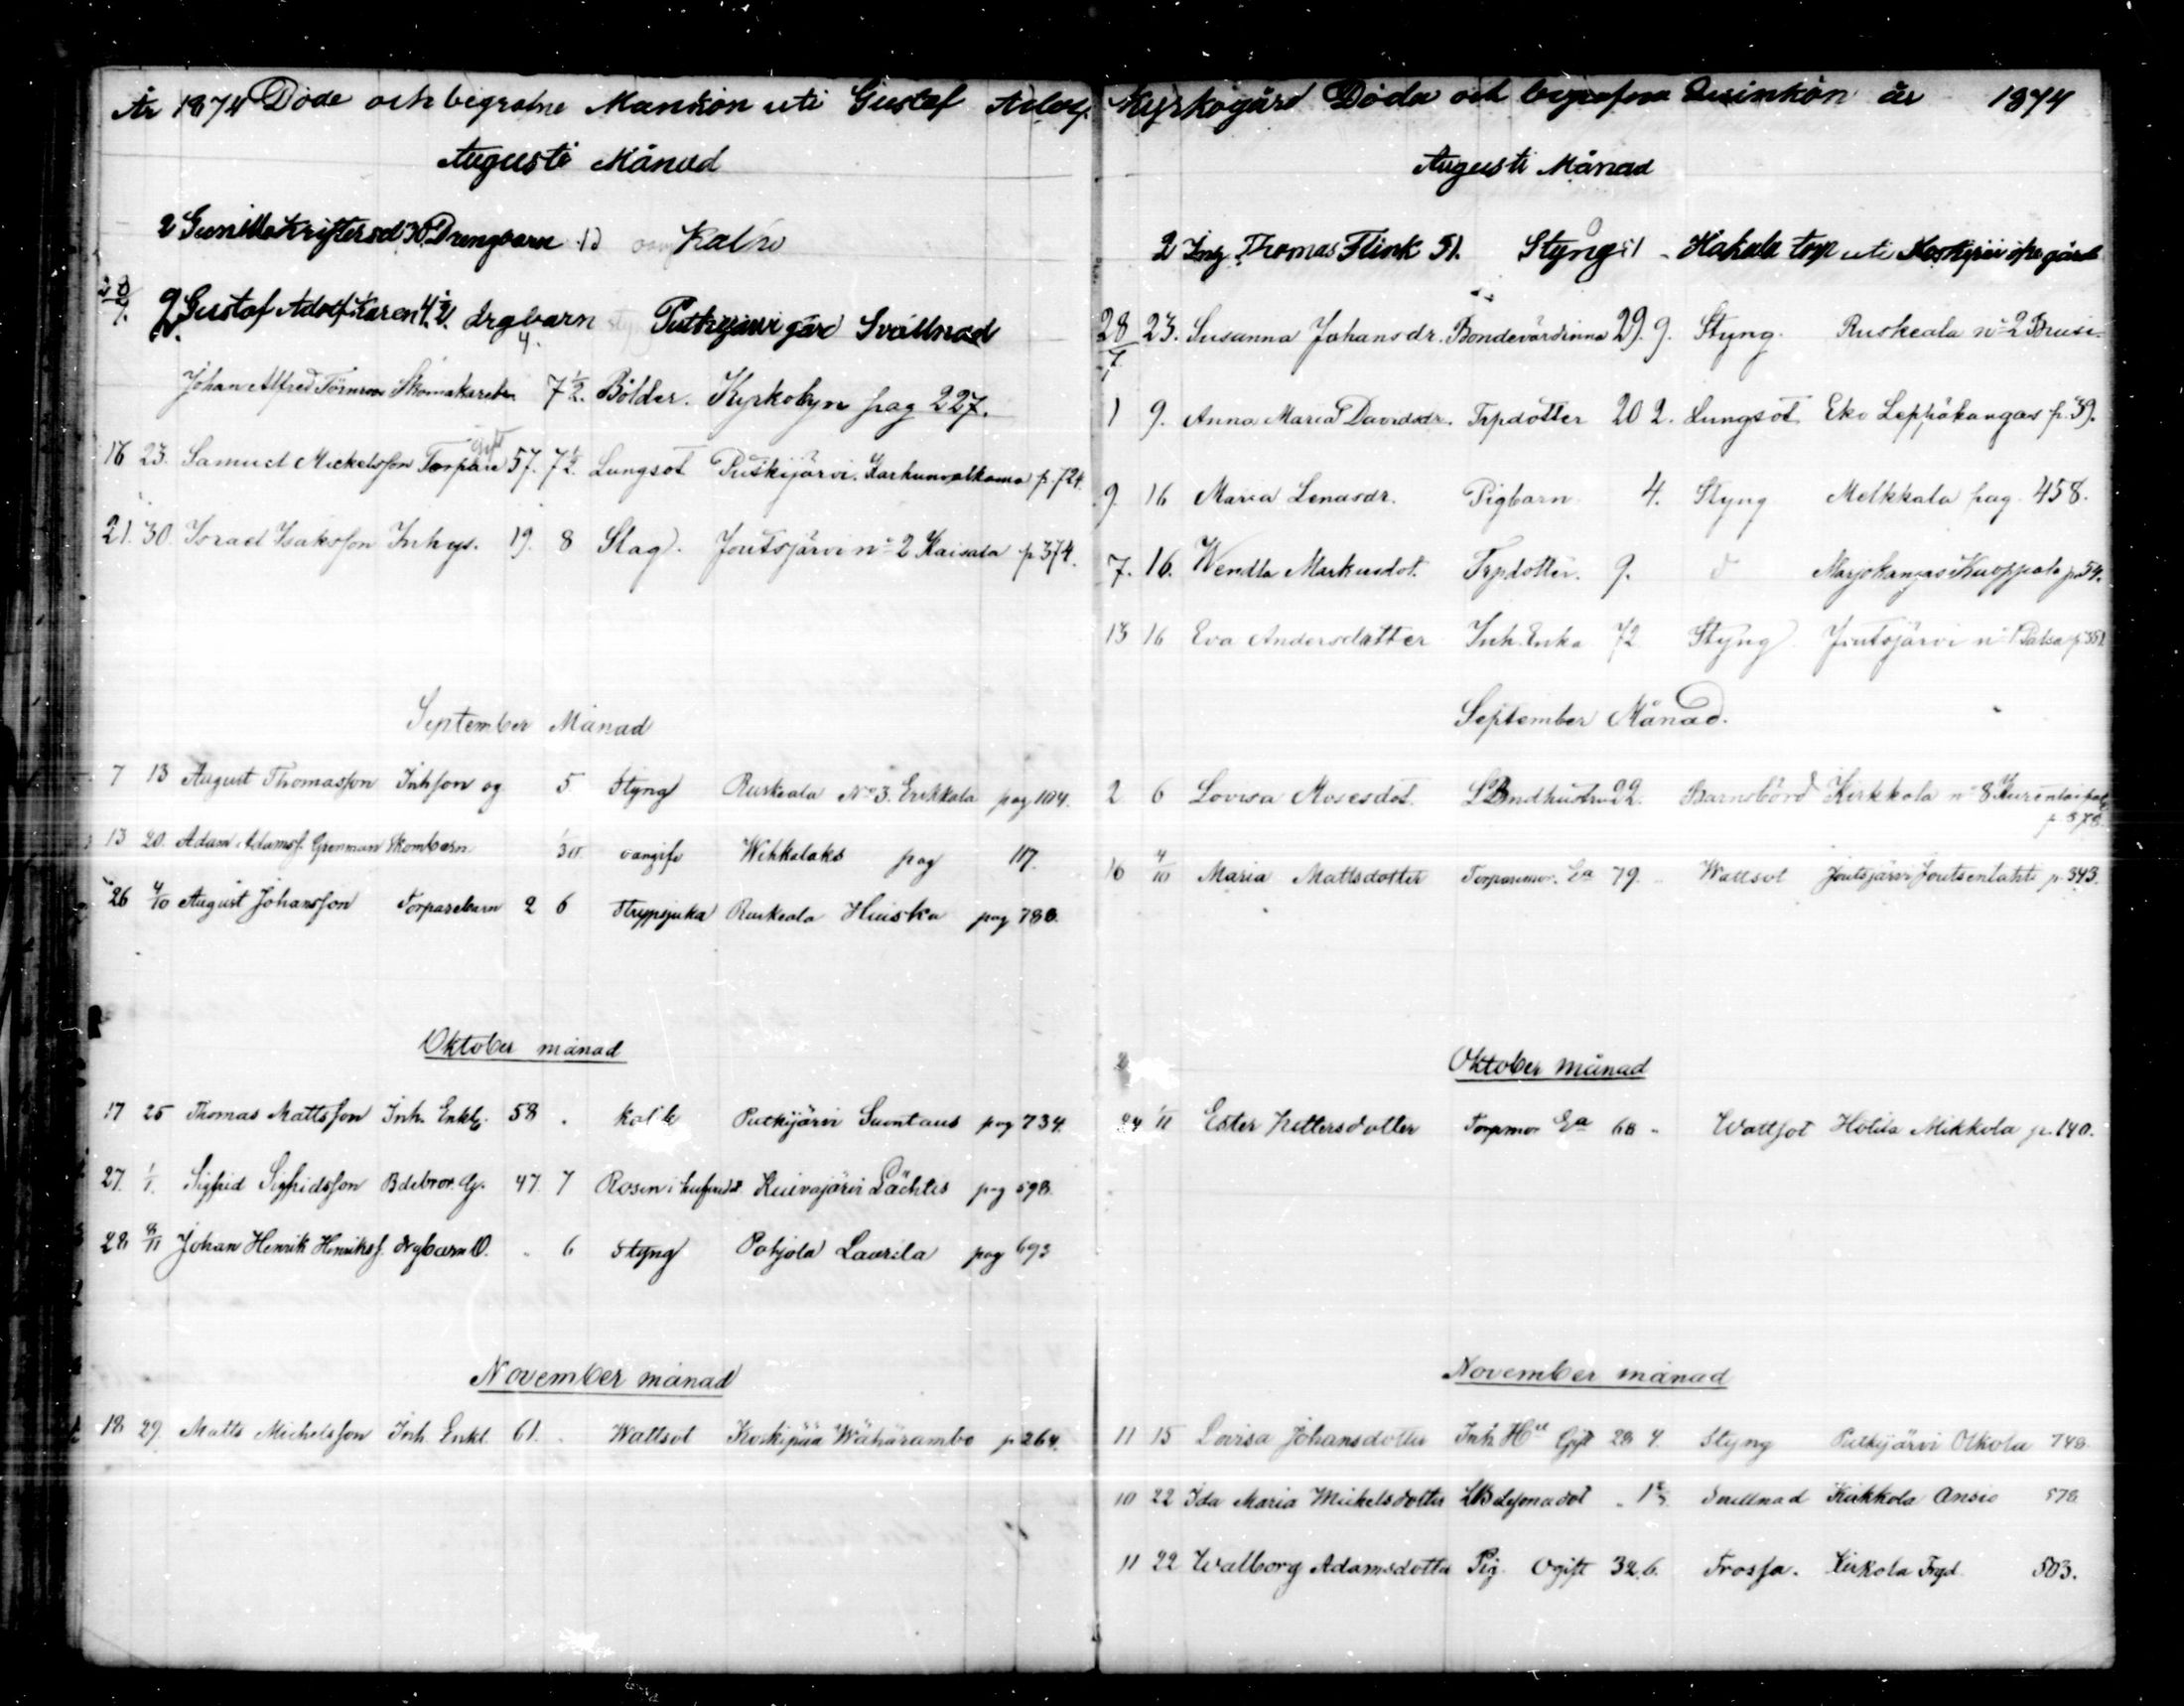 År 1874 Döde och begrafne Mankön uti Gustaf Adolf
Augusti Månad
2 Gunilla Kristersd 30 Drengbarn Kalho
28/7. 9 Gustaf Adolf Karen 4 1/2. drgbarn Putkijärvi gård Svällnad
Johan Alfred Törnroos Skomakarebn 7 1/2. Bölder. Kyrkobyn pag 227.
16 23. Samuel Mickelsson Torpare gift 57. 7 1/2. Lungsot Puskijärvi. p. 724.
21. 30. Israel Isaksson Inhys. 19. 8 Slag. Joutsjärvi no 2 Kaisala p 374.
September Månad
7 13 August Thomasson Inhson og 5 Styng Ruskeala No 3. Erkkala pag 104.
13 20. Adam Adamsf. Grenman Skombarn 1/30 oangifv Wehkalaks pag 117.
26 4/10 August Johansson Torparebarn 2 6 Strypsjuka Ruskeala Huiska pag 780.
Oktober månad
17 25 Thomas Mattsson Inh. Enkl. 58 . kolik Putkijärvi Suontaus pag 734.
27. 1/1. Sigfrid Sigfridsson Bdebror. Og. 47 7 Rosen i hufvudet Kuivajärvi Lächtis pag 598.
28 8/11 Johan Henrik Henriksf. drgbarn O. " 6 Styng Pohjola Laurila pag 693
November månad
18 29. Matts Michelsson Inh. Enkl. 61. . Wattsot Koskipää Wähärambo p 264.
Kyrkogård Döda och begrafna Qvinkön år 1874
Augusti Månad
2 Inh. Thomas Flink 51. Styng 51 - Hakala torp uti gård
28/7 23. Susanna Johansdr. Bondevärdinna 29. 9. Styng. Ruskeala no 2 Brusi-
1 9. Anna Maria Davidsdr. Trpdotter 20 2. Lungsot Eko Leppäkangas p. 39.
9. 16 Maria Lenasdr. Pigbarn 4. Styng Melkkala pag. 458.
7. 16. Wendla Markusdot. Trpdotter. 9. d Marjokangas Kuoppala p. 54.
13 16 Eva Andersdotter Inh. Enka 72 Styng Joutsjärvi no 1 Patsa p 351
September Månad.
2 6 Lovisa Mosesdot. LBndhustru 22. Barnsbörd Kirkkola no 8 Kurenlai
p. 578.
16 4/10 Maria Mattsdotter Torparemor. Ea 79. " Wattsot Joutsjärvi Joutsenlahti p. 343.
Oktober månad
24 1/11 Ester Pettersdotter Torpmor Ea 68 " Wattsot Hölilä Mikkola p. 140.
November månad
11 15 Lovisa Johansdotter Inh. Hu Gift 28 4. Styng Putkijärvi Olkola 748
10 22 Ida Maria Mickelsdotter dot Svullnad Kirkkola Ansio 578
11 22 Walborg Adamsdotter Pig. Ogift 32. 6. Trossa. Kirkola Fryd. 503.